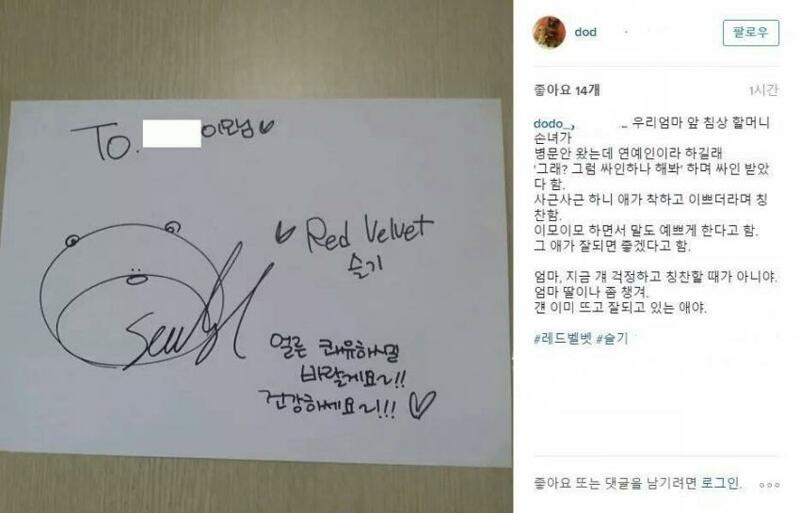 To. 이모님♥
♥ Red Velvet
슬기
Seulgi
얼른 쾌유하시길
바랄게요~!!
건강하세요~!!! ♡
dod
팔로우
좋아요 14개
1시간
dodo_, .. 우리엄마 앞 침상 할머니
손녀가
병문안 왔는데 연예인이라 하길래
'그래? 그럼 싸인하나 해봐' 하며 싸인 받았
다 함.
사근사근 하니 애가 착하고 이쁘더라며 칭
찬함.
이모이모 하면서 말도 예쁘게 한다고 함.
그 애가 잘되면 좋겠다고 함.
엄마, 지금 걔 걱정하고 칭찬할 때가 아니야.
엄마 딸이나 좀 챙겨.
걘 이미 뜨고 잘되고 있는 애야.
#레드벨벳 #슬기
좋아요 또는 댓글을 남기려면 로그인.